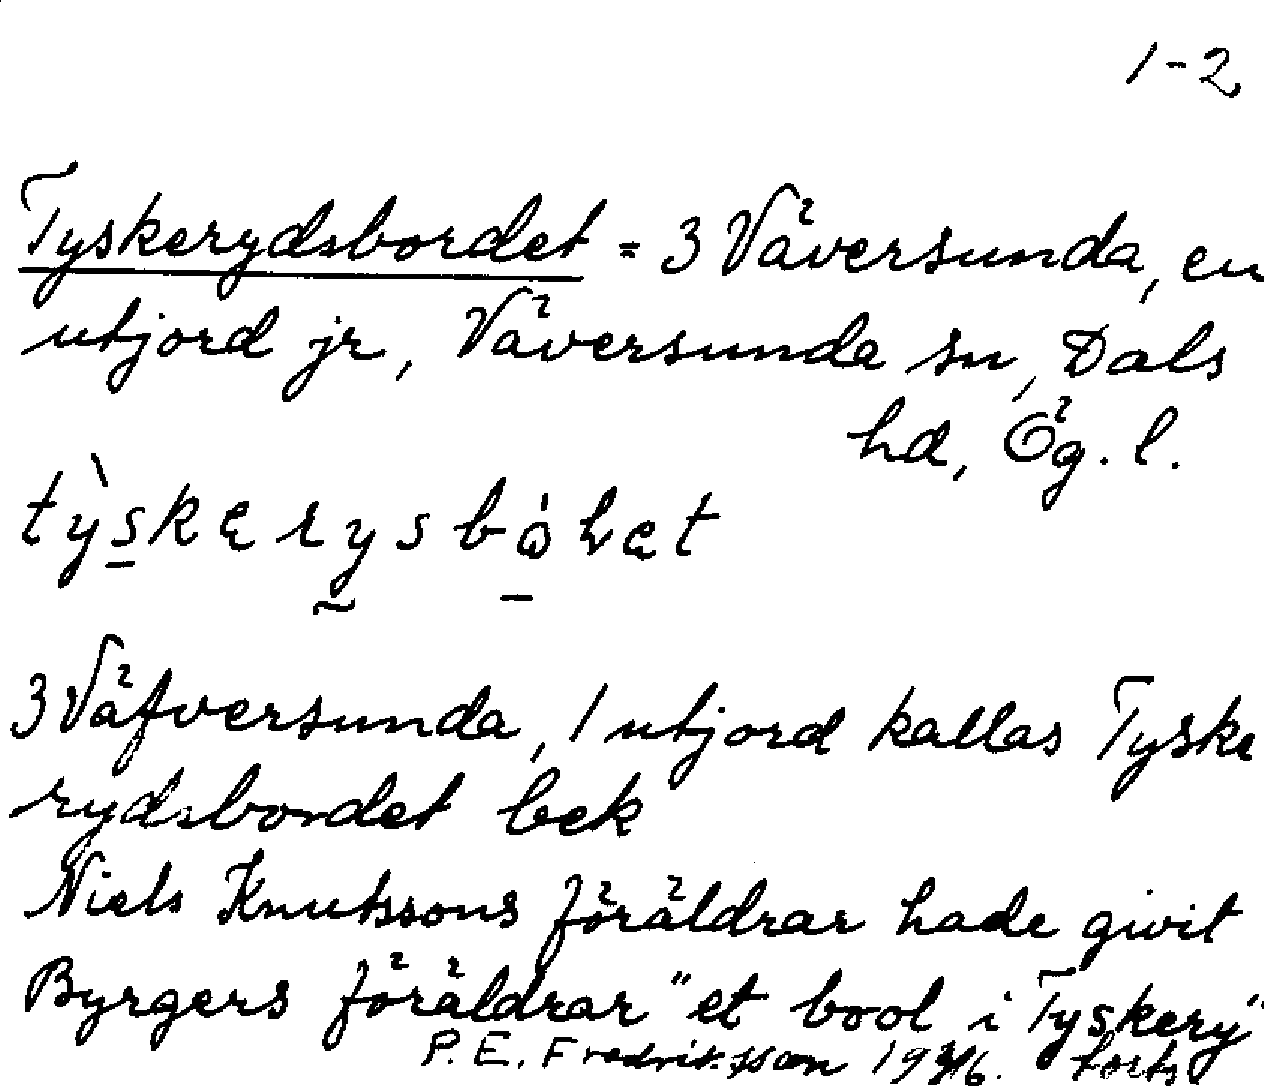 1-2
Tyskerydsbordet = 3 Väversunda, en
utjord jr, Väversunda sn, Dals
hd, Ög. l.
3 Väfversunda, 1 utjord kallas Tyske
rydsbordet bek
Niels Knutssons föräldrar hade givit
Byrgers föräldrar "et bool i Tyskery"
P. E. Fredriksson forts